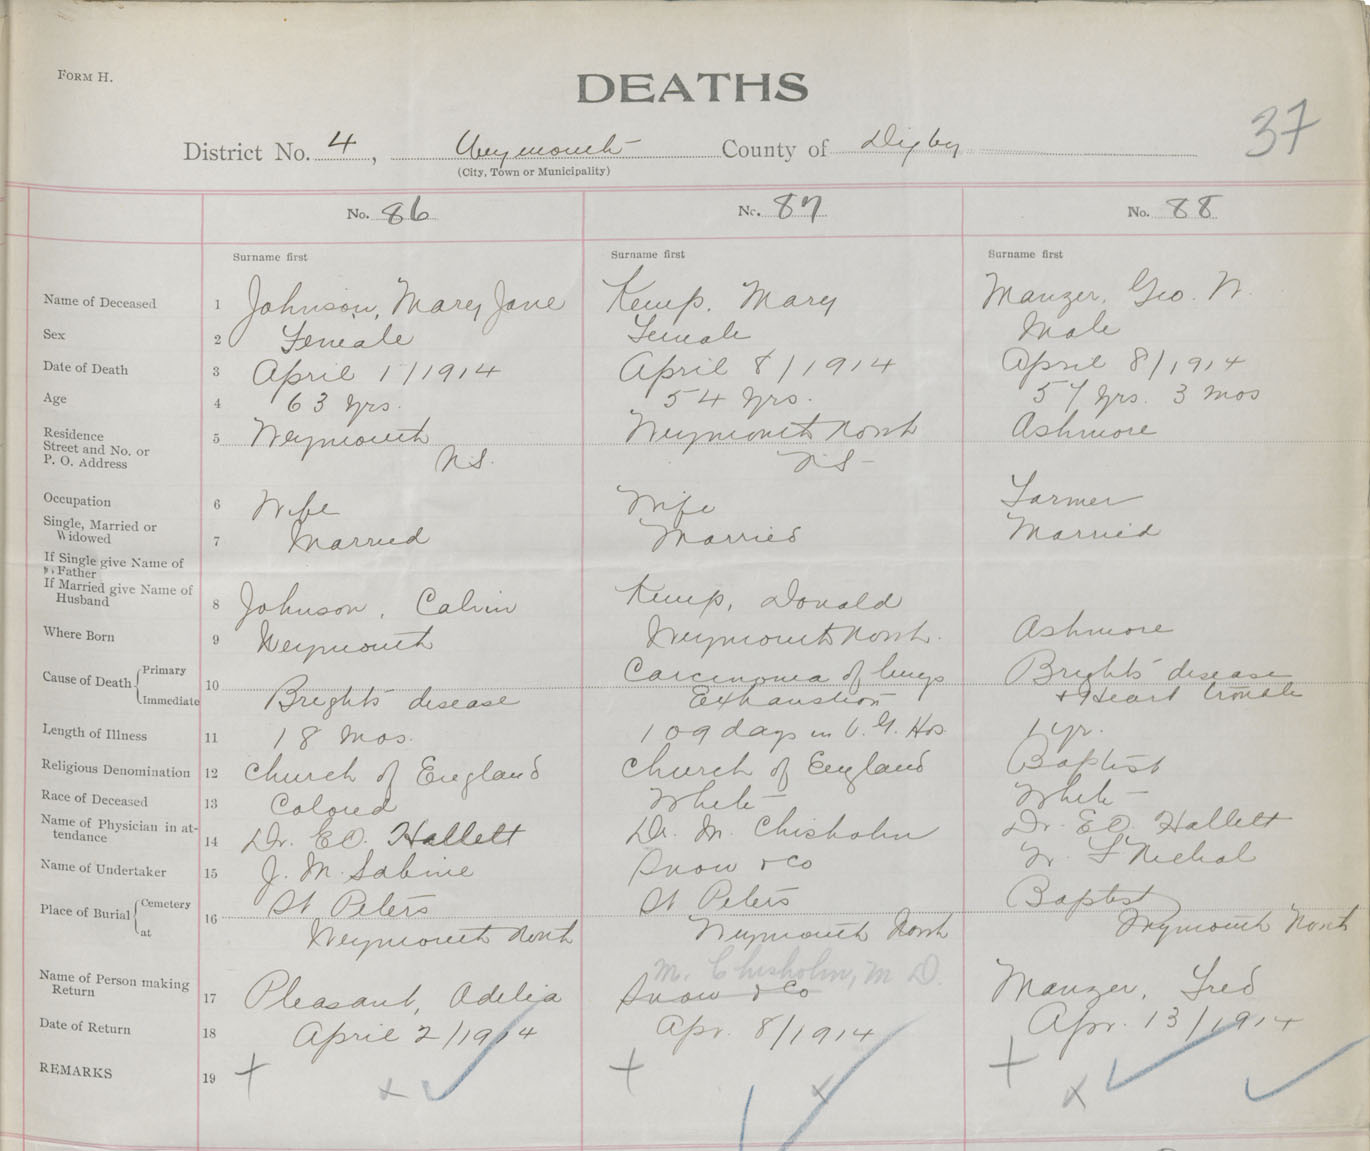 FORM H.
DEATHS
37
District No. 4, Weymouth County of Digby
(City, Town or Municipality)
No. 86 No. 87 No. 88
Surname first Surname first Surname first
Name of Deceased 1 Johnson, Mary Jane Kemp, Mary Manzer, Geo. W.
Sex 2 Female Female Male
Date of Death 3 April 1/1914 April 8/1914 April 8/1914
Age 4 63 yrs. 54 yrs. 57 yrs. 3 mos
Residence
Street and No. or
P. O. Address 5 Weymouth Weymouth North Ashmore
N.S. N.S
Occupation 6 Wife Wife Farmer
Single, Married or
Widowed 7 Married Married Married
If Single give Name of
Father
If Married give Name of
Husband 8 Johnson, Calvin Kemp, Donald
Where Born 9 Weymouth Weymouth North. Ashmore
Cause of Death Primary 10 Carcinoma of lungs Brights disease
Immediate Brights disease Exhaustion + Heart trouble
Length of Illness 11 18 mos. 109 days in V. G. Hos. 1 yr.
Religious Denomination 12 Church of England Church of England Baptist
Race of Deceased 13 Colored White White
Name of Physician in at-
tendance 14 Dr. E.O. Hallett Dr. M. Chisholm Dr. E.O. Hallett
Name of Undertaker 15 J. M. Sabine Snow & Co Nichol
Place of Burial Cemetery 16 St Peters St Peters Baptist
at Weymouth North Weymouth North Weymouth North
M. Chisholm, M D.
Name of Person making
Return 17 Pleasant, Adelia Snow & Co Manzer, Fred
Date of Return 18 April 2/1914 Apr. 8/1914 Apr. 13/1914
REMARKS 19 + + +
x x x